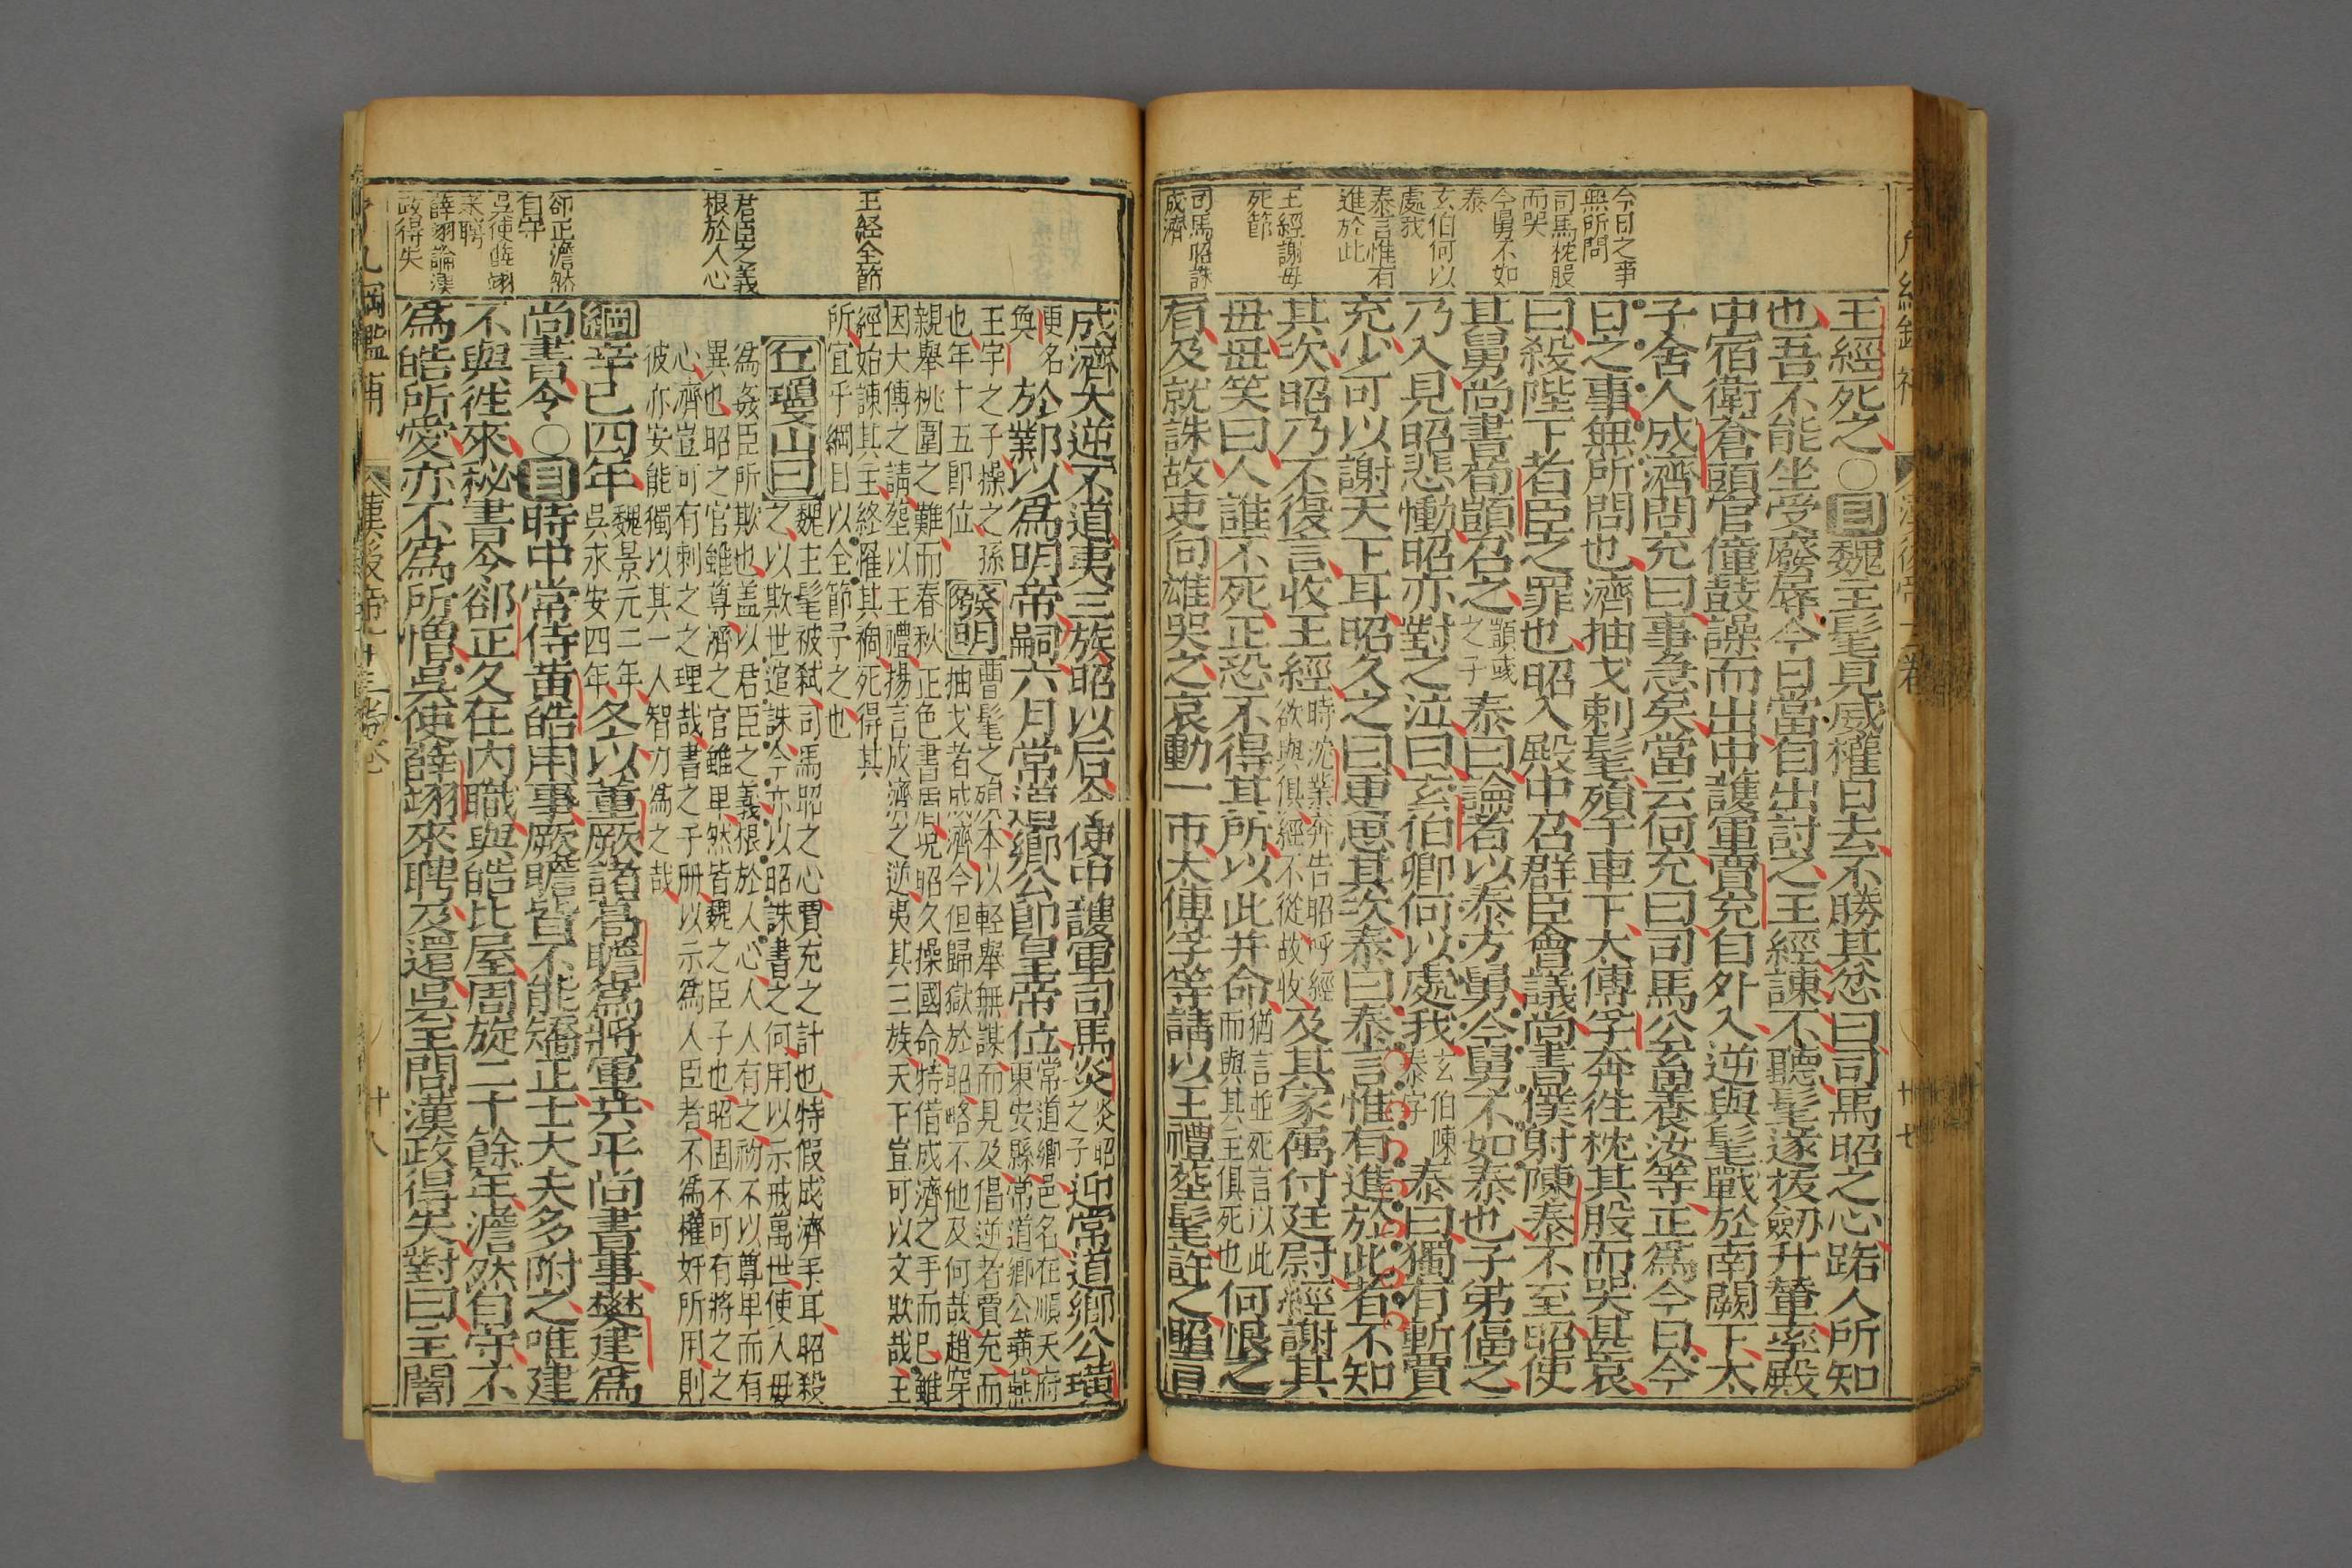 今日之事
無所問
司馬枕股
而哭
今舅不如
泰
玄伯何以
處我
泰言惟有
進於此
王經謝母
死節
司馬昭誅
成濟
王經死之○目魏主髦見威權日去不勝其忿曰司馬昭之心路人所知
也吾不能坐受廢辱今日當自出討之王經諫不聽髦遂拔劒升輦率殿
中宿衛蒼頭官僮鼓譟而出中護軍賈充自外入逆與髦戰於南闕下太
子舍人成濟問充曰事急矣當云何充曰司馬公畜養汝等正爲今日今
日之事無所問也濟抽戈刺髦殞于車下太傅孚奔徃枕其股而哭甚哀
曰殺陛下者臣之罪也昭入殿中召群臣會議尚書僕射陳泰不至昭使
其舅尚書荀顗召之顗彧之子泰曰論者以泰方舅今舅不如泰也子弟偪之
乃入見昭悲慟昭亦對之泣曰玄伯卿何以處我玄伯陳泰字泰曰獨有斬賈
充少可以謝天下耳昭久之曰更思其次泰曰泰言惟有進於此者不知
其次昭乃不復言收王經時沈業奔告昭呼經欲與俱經不從故收及其家屬付廷尉經謝其
母母笑曰人誰不死正恐不得其所以此并命猶言並死言以此而與其主俱死也何恨之
有及就誅故吏向雄哭之哀動一市太傅孚等請以王禮塟髦許之昭言
王経全節
君臣之義
根於人心
郤正澹然
自守
吳使薛翊
来聘
薛翊論漢
政得失
成濟大逆不道夷三族昭以后令使中護軍司馬炎炎昭之子迎常道鄉公璜
更名奐於鄴以爲明帝嗣六月常道鄉公即皇帝位常道鄉邑名在順天府東安縣常道鄉公璜燕
王宇之子操之孫也年十五即位發明曹髦之殞本以輕舉無謀而見及倡逆者賈充而抽戈者成濟今但歸獄於昭略不他及何哉趙穿
親舉桃園之難而春秋正色書盾况昭久操國命特借成濟之手而已雖
因太傅之請塟以王禮揚言成濟之逆夷其三族天下豈可以文欺哉王
經始諫其主終罹其禍死得其
所宜乎綱目以全節予之也
丘瓊山曰魏主髦被弑司馬昭之心賈充之計也特假成濟手耳昭殺
之以欺世逭誅今亦以昭誅書之何用以示戒萬世使人毋
爲姦臣所欺也盖以君臣之義根於人心人人有之初不以尊卑而有
異也昭之官雖尊濟之官雖卑然皆魏之臣子也昭固不可有將之之
心濟豈可有刺之之理哉書之于册以示爲人臣者不爲權奸所用則
彼亦安能獨以其一人智力爲之哉
綱辛巳四年魏景元二年吳永安四年冬以董厥諸葛瞻爲將軍共平尚書事樊建爲
尚書令○目時中常侍黃皓用事厥瞻皆不能矯正士大夫多附之唯建
不與徃來秘書令郤正久在内職與皓比屋周旋三十餘年澹然自守不
爲皓所愛亦不爲所憎吳使薛翊來聘及還吳主問漢政得失對曰主闇